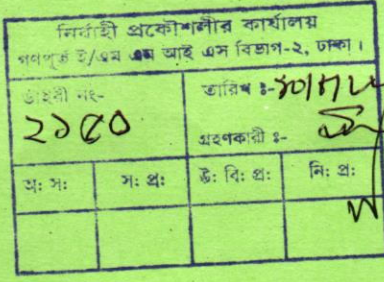 নির্বাহী প্রকৌশলীর কার্যালয়
গণপূর্ত ই/এম এম আই এস বিভাগ-২, ঢাকা।
ডাইরী নং-
তারিখ ঃ-
২১৫০
গ্রহণকারী ঃ-
অঃ সঃ
সঃ প্রঃ
উঃ বিঃ প্রঃ
নিঃ প্রঃ